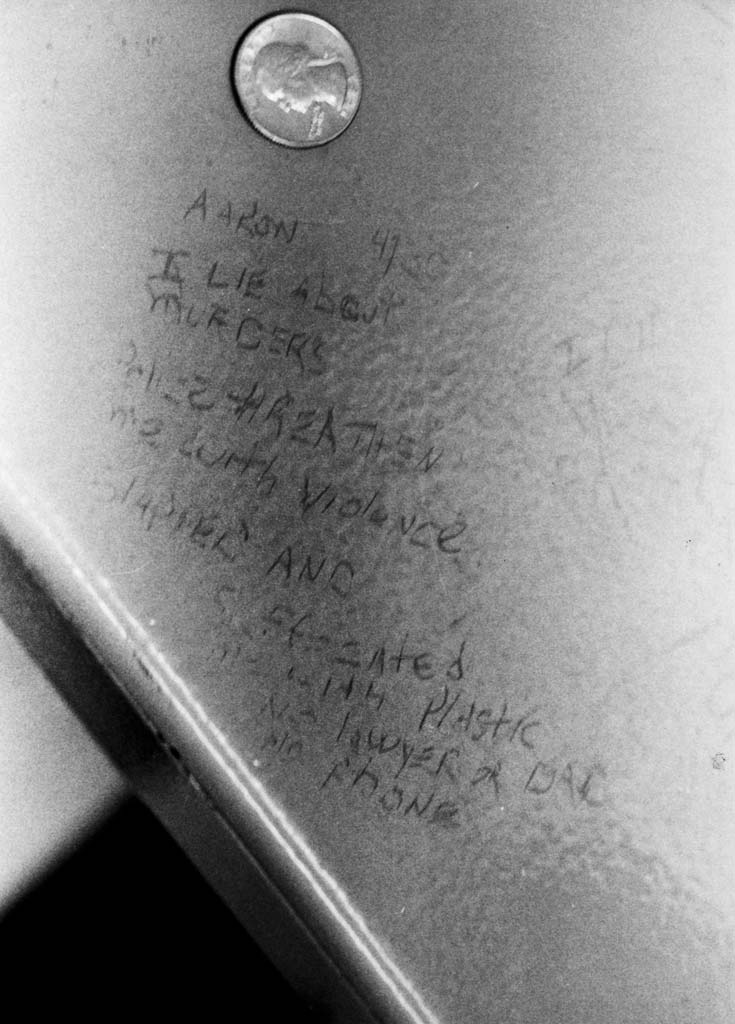 AARON 4/30
I LIE AbOUT
MURDERS
Police tHREATHEN
me with Violence
SlApped AND
SuffocAted
me with PlAstic
No lAwyer OR DAD
No PhONE